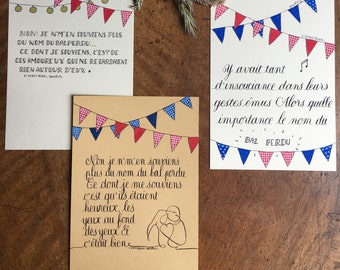 NON! JE N'M'EN SOUVIENS PLUS
DU NOM DU BAL PERDU...
CE DONT JE ME SOUVIENS, C'EST DE
CES AMOUREUX QUI NE REGARDAIENT
RIEN AUTOUR D'EUX.
Y'avait tant
d'insouciance dans leurs
gestes émus Alors quelle
importance le nom du
BAL PERDU
Non je n'm'en souviens
plus du nom du bal perdu
Ce dont je me souviens
c'est qu'ils étaient
heureux, les
yeux au fond
des yeux &
c'était bien